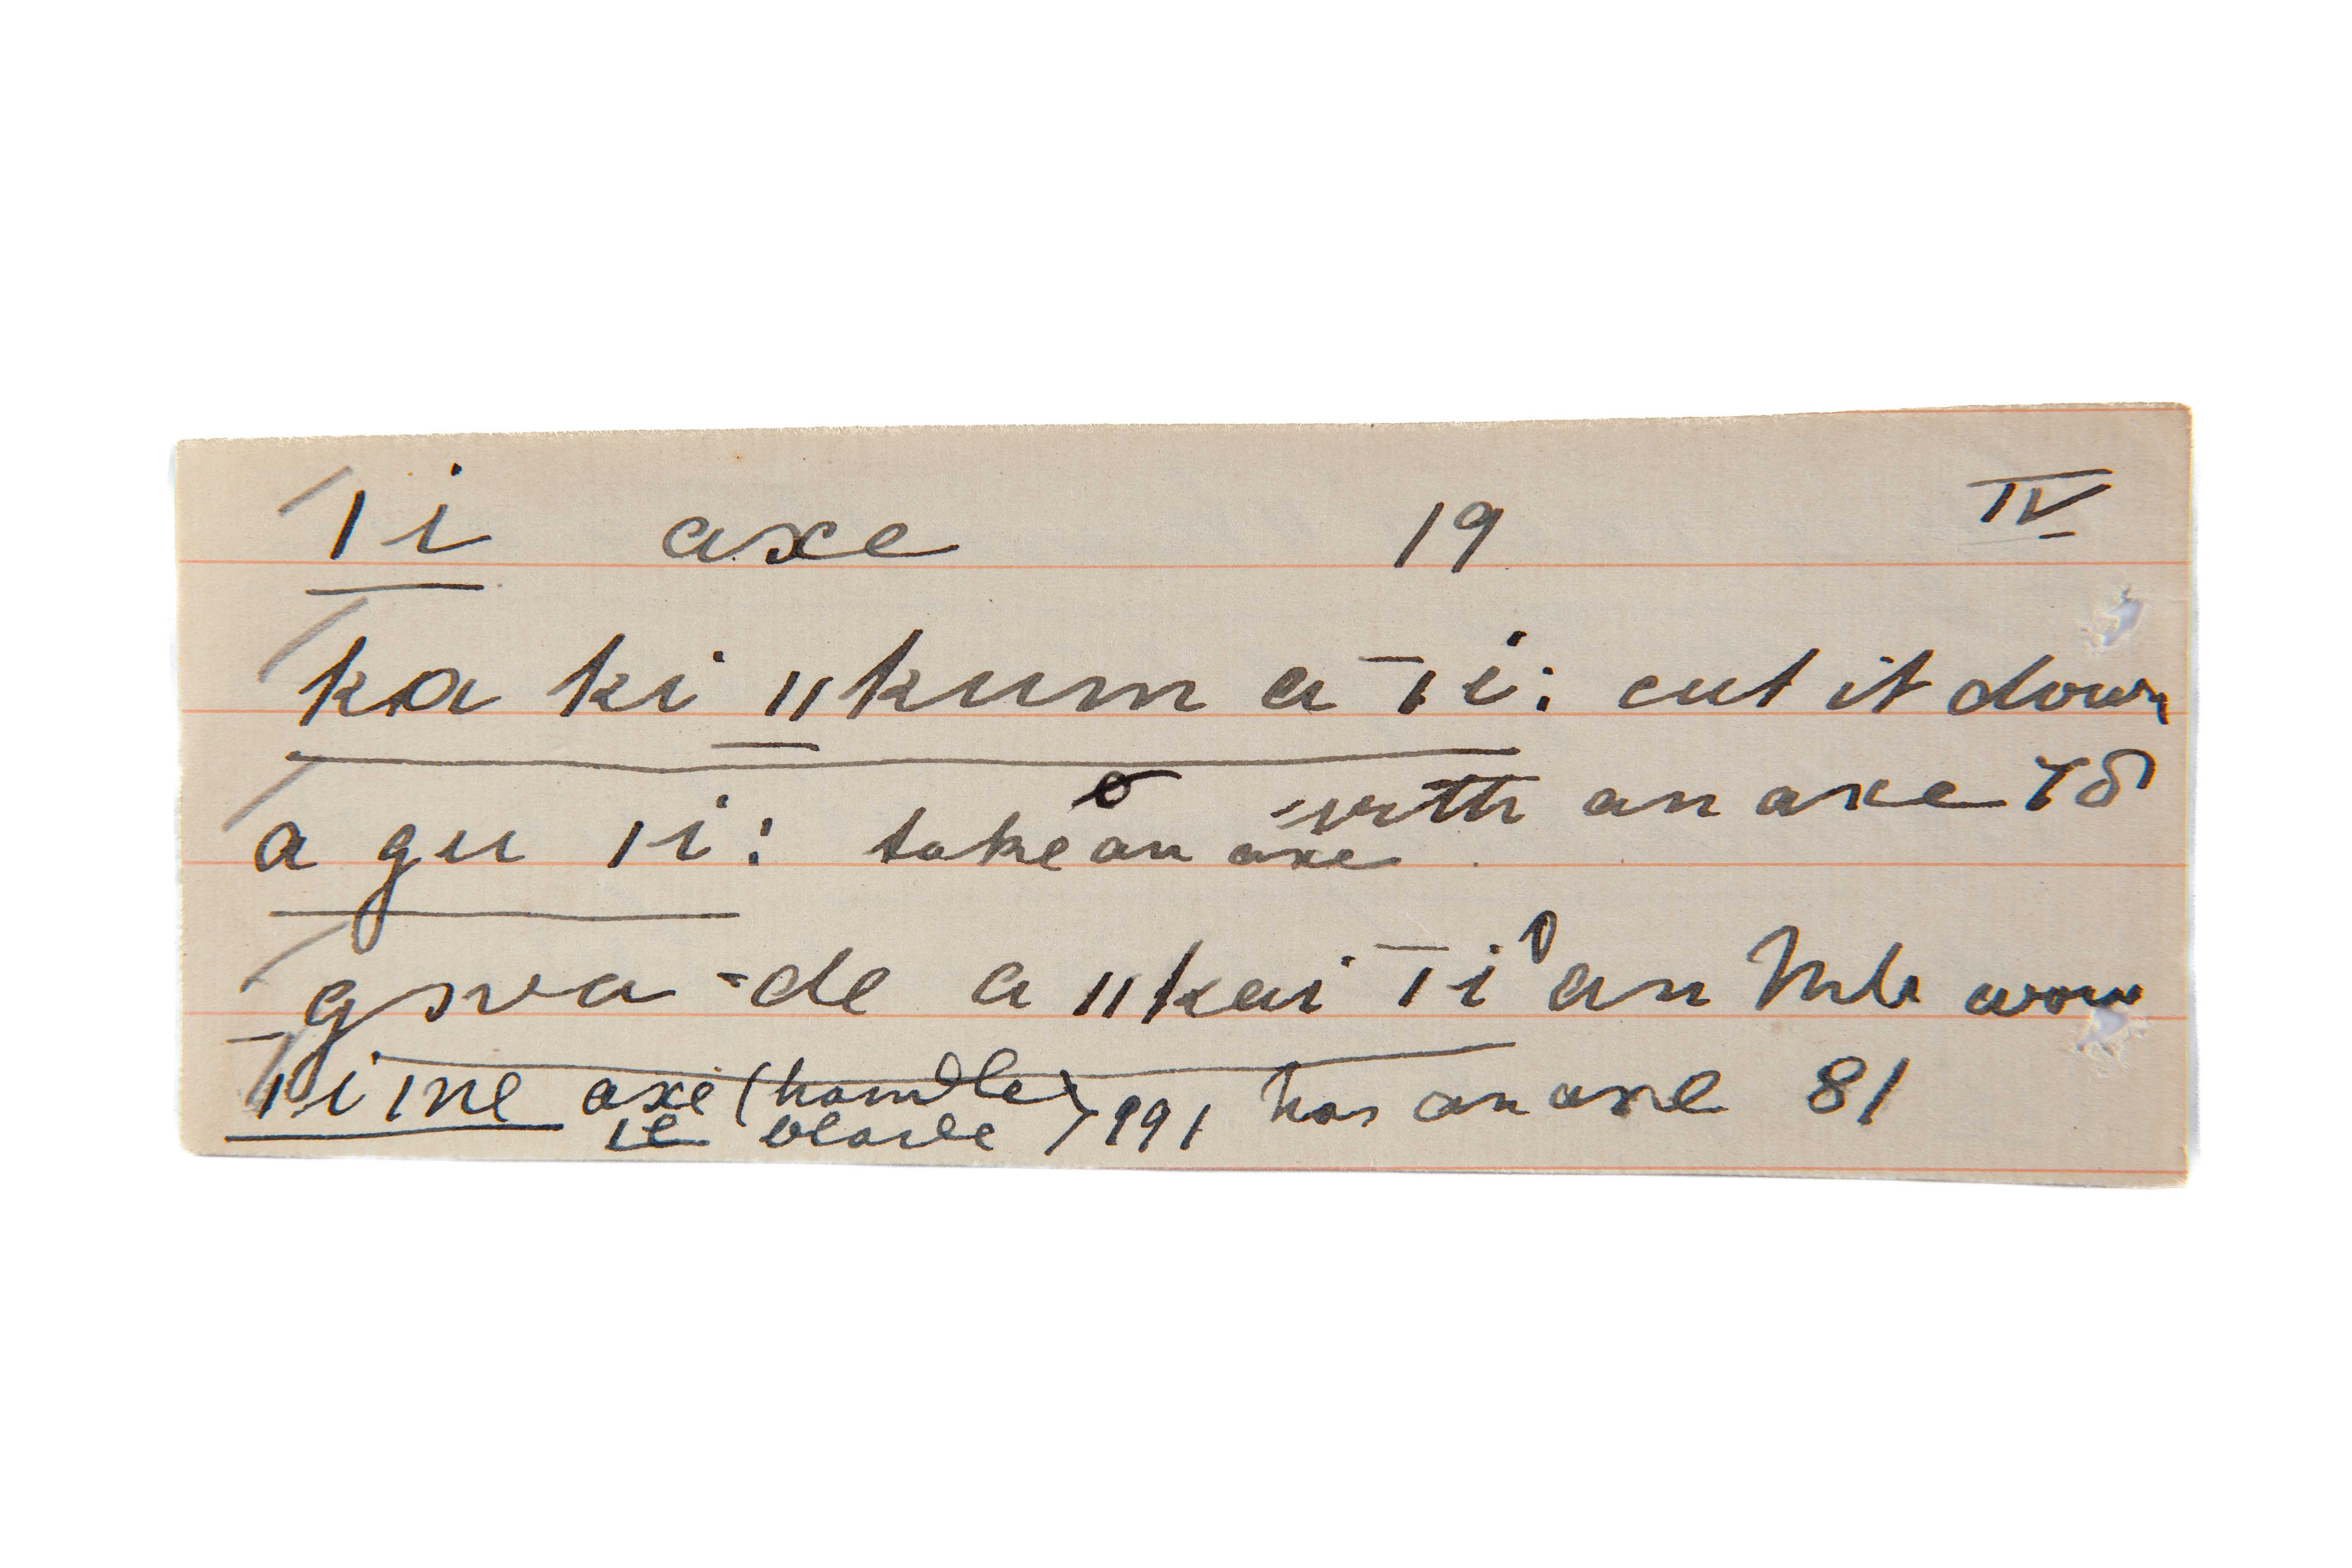 ǀi axe 19 IV
ka ki ǁkum a ǀi: cut it down
with an axe 78
a gu ǀi: take an axe
gwa-de a ǁkai ǀi an Mb wom
has an axe 81
ǀi ǀne axe (handle) 991
ie blade